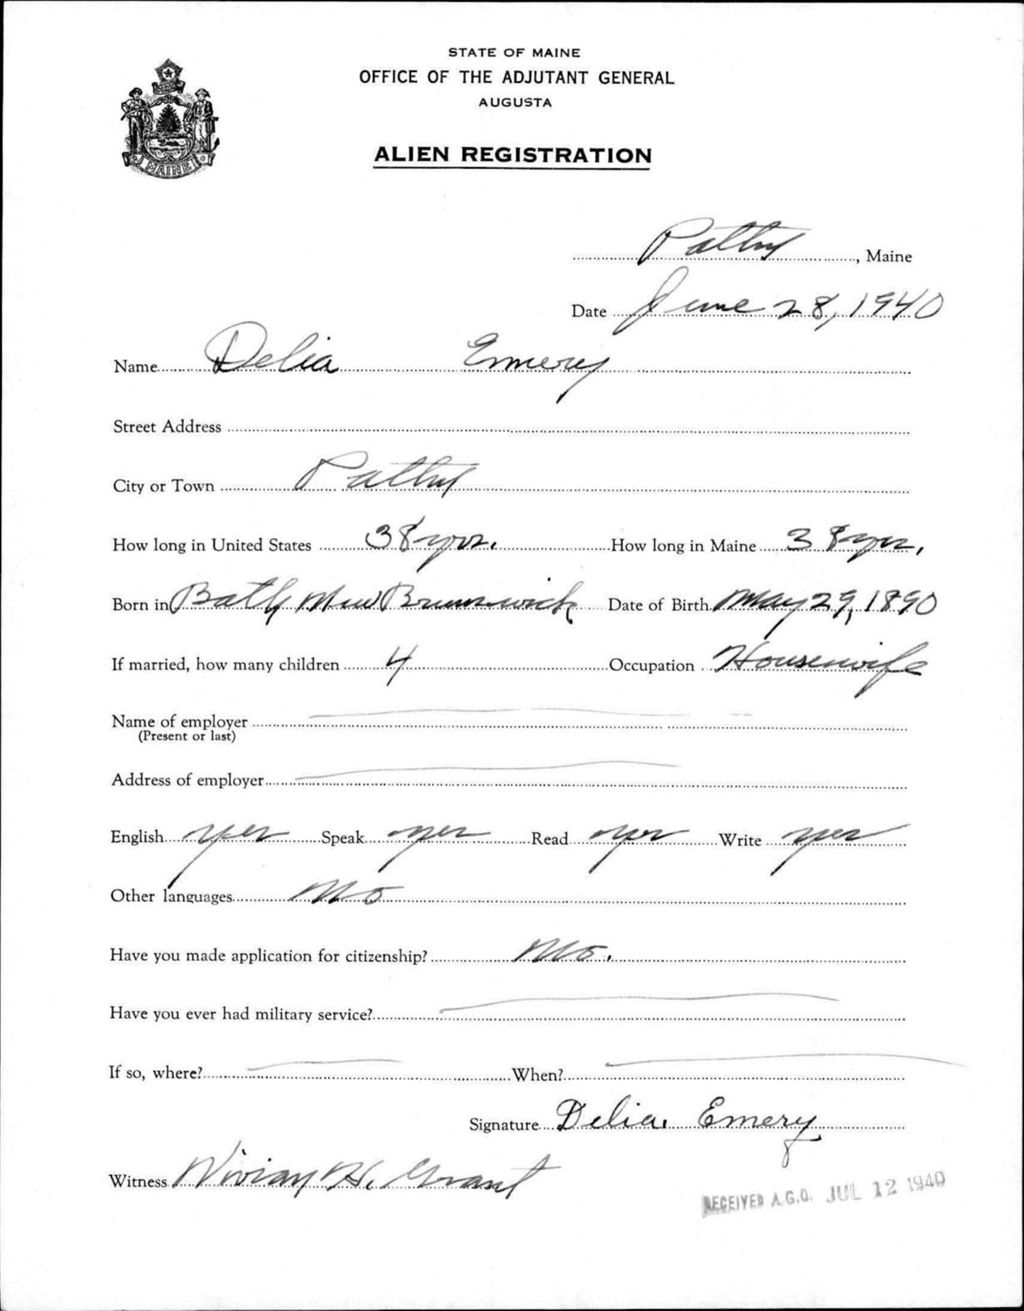 STATE OF MAINE
OFFICE OF THE ADJUTANT GENERAL
AUGUSTA
ALIEN REGISTRATION
MAINE
Patten, Maine
Date June 28, 1940
Name Delia Emery
Street Address
City or Town Patten
How long in United States 38 yrs. How long in Maine 38 yrs.
Born in Bath New Brunswick Date of Birth May 29, 1890
If married, how many children 4 Occupation Housewife
Name of employer
(Present or last)
Address of employer
English yes Speak yes Read yes Write yes
Other languages No
Have you made application for citizenship? No.
Have you ever had military service?
If so, where? When?
Signature Delia. Emery
Witness Vivian H. Grant
RECEIVED A.G.O. JUL 12 1940